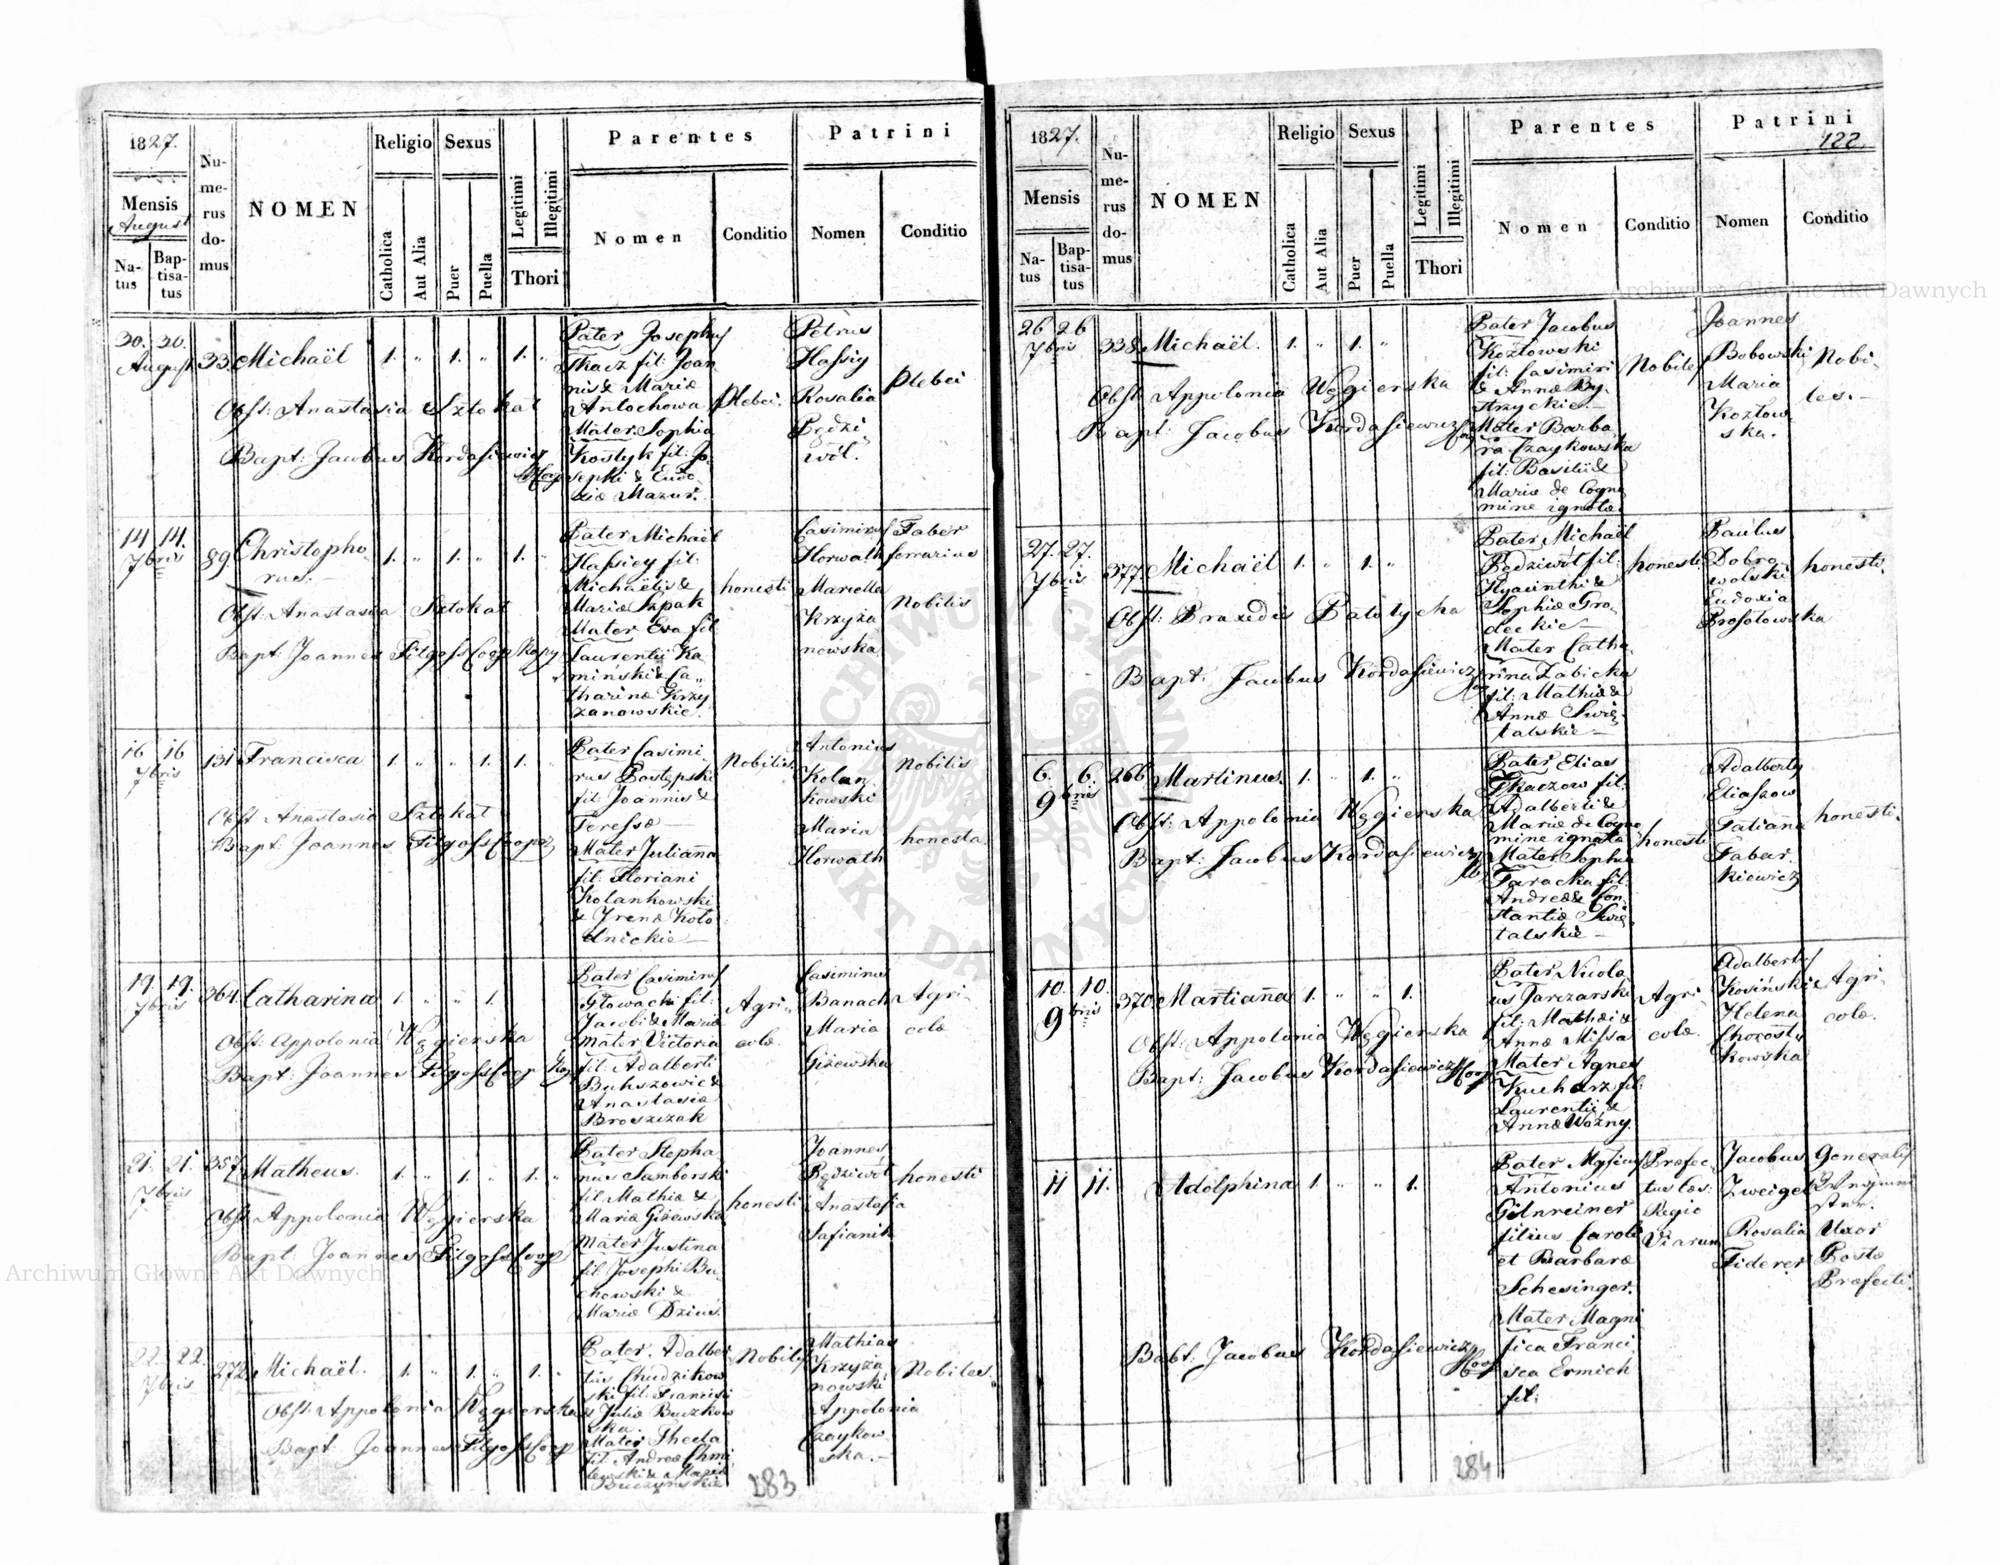 1827.
Mensis
August
Na-
tus
Bap-
tisa-
tus
Nu-
me-
rus
do-
mus
NOMEN
Religio
Catholica
Aut Alia
Sexus
Puer
Puella
Legitimi
Illegitimi
Thori
Parentes
Nomen
Conditio
Patrini
Nomen
Conditio
30. 30.
August
33
Michaël
1. " 1. " 1. "
Obst: Anastasia Sztokat
Bapt: Jacobus Kordasiewicz
Pater Josephus
Tkacz fil: Joan
nis & Mariæ
Antochowa
Mater Sophia
Kostyk fil: Jo-
sephi & Eudo-
xiæ Mazur.
Plebei.
Petrus
Hassiy
Rosalia
Będzi
wöl.
Plebei
14 14.
7bris
89
Christopho-
rus.
1. " 1. " 1. "
Obst: Anastasia Sztokat
Bapt: Joannes Filgass Coop
Pater Michaël
Hassiey fil:
Michaëlis &
Mariæ Szpak
Mater Eva fil:
Laurentii Ka
miński & Ca-
tharinæ Krzy
żanowskie.
honesti
Casimirus
Horwath
Marcella
Krzyża
nowska
Faber
ferrarius
Nobilis
16 16
7bris
131
Francisca
1. " " 1. 1. "
Obst Anastasia Sztokat
Bapt: Joannes Filgass Coop
Pater Casimi-
rus Postępski
fil: Joannis &
Teressæ
Mater Julianna
fil: Floriani
Kolankowski
& Irenæ Koto
dnickie
Nobilis
Antonius
Kolan
kowski
Maria
Horwath
Nobilis
honesta
19. 19.
7bris
364
Catharina
1. " " 1.
Obst: Appolonia Węgierska
Bapt: Joannes Filgass Coop
Pater Casimirus
Głowacki fil:
Jacobi & Mariæ
Mater Victoria
fil: Adalberti
Anastasiæ
Broszczak
Agri-
colæ
Casimirus
Banach
Maria
Giżewska
Agri-
colæ
21. 21.
7bris
357
Matheus.
1. " 1. " 1. "
Obst Appolonia Węgierska
Bapt: Joannes Filgass Coop
Pater Stepha
nus Samborski
fil. Mathiæ &
Mariæ Giżewska
Mater Justina
fil: Josephi Bu-
chowski &
Mariæ Dzius.
honesti
Joannes
Będziwol
Anastasia
Safianik
honesti
22. 22.
7bris
272
Michaël.
1. " 1. " 1. "
Obst: Appolonia Węgierska
Bapt: Joannes Filgass Coop
Pater. Adalber
tus Chudzikow
ski fil: Francisci
& Juliæ Buczkow
ska.
Mater Thecla
fil: Andreæ Chmi
lewski & Mariæ
Buczyńskie
Nobiles
Mathias
Krzyża
nowski
Appolonia
Czaykow
ska.
Nobiles.
283
1827.
Mensis
Na-
tus
Bap-
tisa-
tus
Nu-
me-
rus
do-
mus
NOMEN
Religio
Catholica
Aut Alia
Sexus
Puer
Puella
Legitimi
Illegitimi
Thori
Parentes
Nomen
Conditio
Patrini
122
Nomen
Conditio
26 26
7bris
338
Michaël.
1. " 1. "
Obst: Appolonia Węgierska
Bapt: Jacobus Kordasiewicz
Pater Jacobus
Kozłowski
fil: Casimiri
& Annæ By-
strzyckie
Mater Barba
ra Czaykowska
fil: Basilii &
Mariæ de Cogno
mine ignotæ
Nobiles
Joannes
Bobowski
Maria
Kozłow
ska.
Nobi-
les.
27. 27.
7bris
377.
Michaël
1. " 1. "
Obst: Praxedis Bałotycha
Bapt: Jacobus Kordasiewicz
Pater Michaël
Będziwol fil:
Hyacinthi &
Sophiæ Gro-
deckie
Mater Catha-
rina Zabicka
fil: Mathiæ &
Annæ Swię-
talskie
honesti
Paulus
Dobro
wolski
Eudoxia
Brosotowska
honesti.
6. 6.
9bris
266
Martinus.
1. " 1. "
Obst: Appolonia Węgierska
Bapt: Jacobus Kordasiewicz
Pater Elias
Tkaczow fil:
Adalberti &
Mariæ de Cogno
mine ignotæ
Mater Sophia
Taracka fil:
Andreæ & Con-
stantiæ Swię-
talskie
honesti
Adalbertus
Eliaszow
Tatianna
Faber
kiewicz
honesti.
10. 10.
9bris
370.
Martianna
1. " " 1.
Obst: Appolonia Węgierska
Bapt: Jacobus Kordasiewicz Coop
Pater Nicola
us Tarczarski
fil: Mathæi &
Annæ Missa
Mater Agnes
Kucharz fil:
Laurentii &
Annæ Woźny.
Agri-
colæ.
Adalbertus
Kosinski
Helena
Chorost-
kowska
Agri-
colæ.
11 11.
Adolphina
1. " " 1.
Babt. Jacobus Kordasiewicz Coop
Pater
Antonius
Gilnreiner
filius Caroli
et Barbaræ
Schesinger.
Mater Magni
fica Franci
sca Ermich
fil:
Præfec-
tus Cæs:
Regio
Viarum
Jacobus
Zweigel
Rosalia
Fiderer
Generalis
Uxor
Postæ
Præfecti.
284
Archiwum Główne Akt Dawnych
Archiwum Główne Akt Dawnych
ARCHIWUM GŁÓWNE AKT DAWNYCH